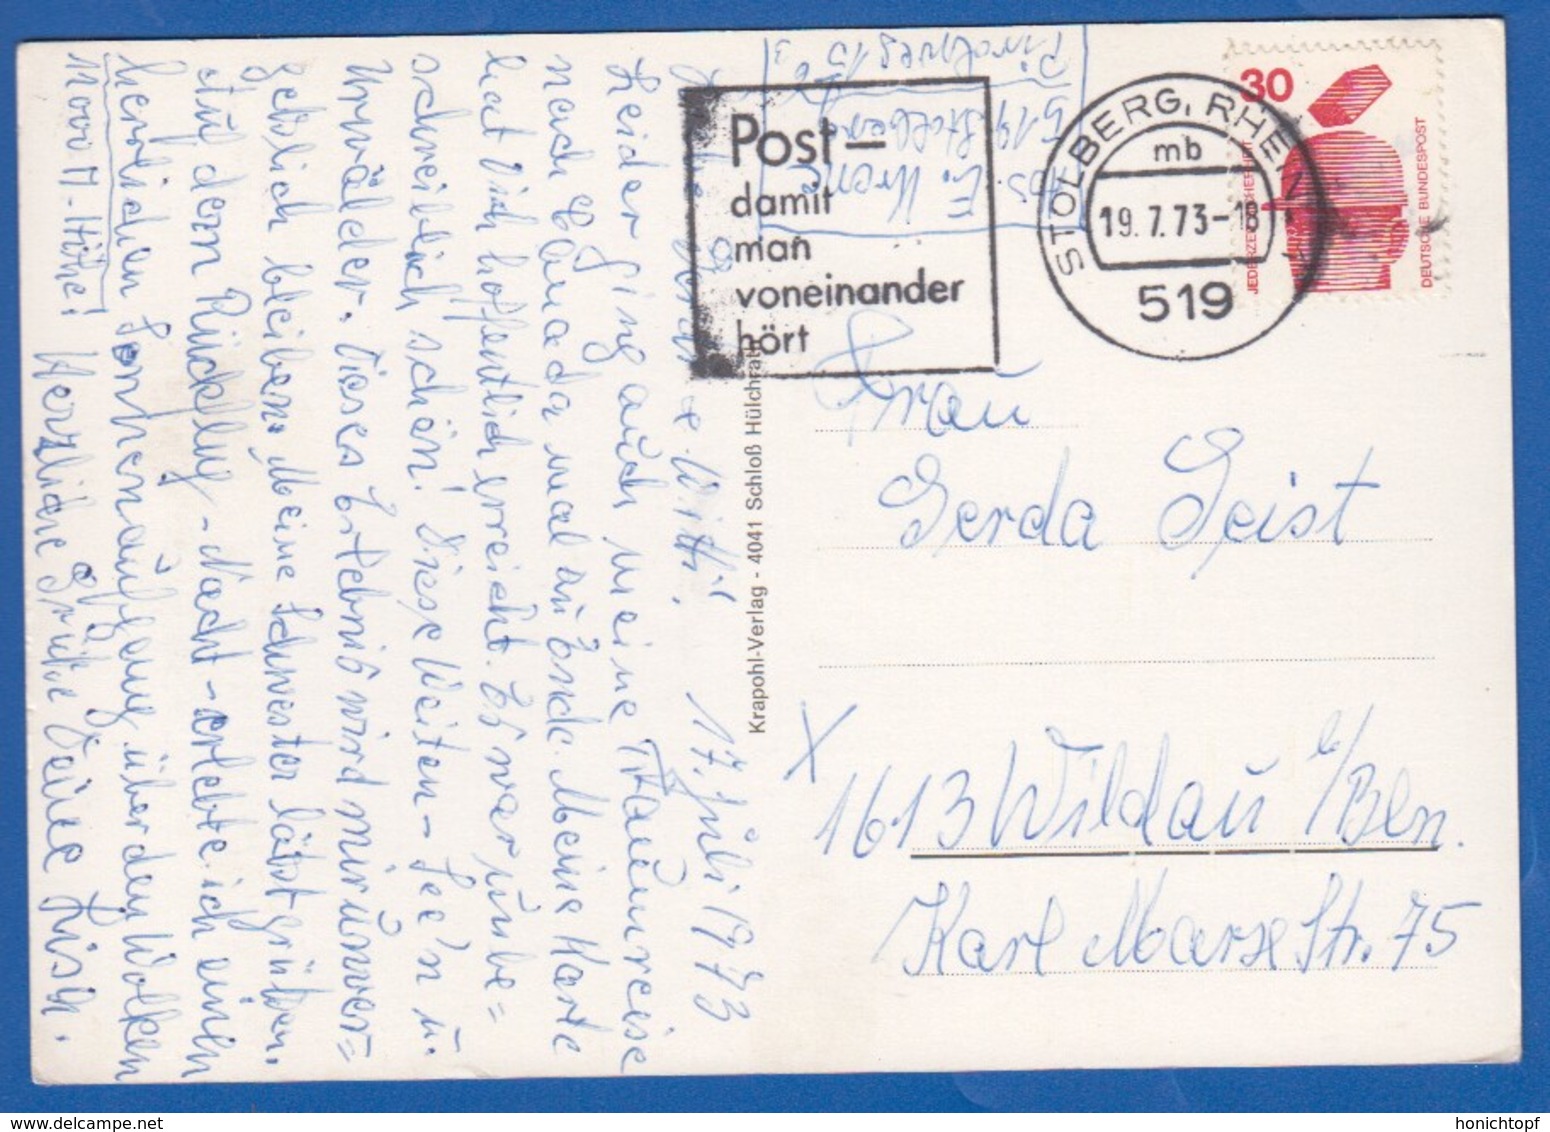 Liebe Gerda u. Willi! 17. Juli 1973
Leider ging auch meine Traumreise
nach Canada mal zu Ende. Meine Karte
hat Dich hoffentlich erreicht. Es war unbe=
schreiblich schön! Diese Weiten - See'n u.
Urwälder. Dieses Erlebnis wird mir unver=
geßlich bleiben. Meine Schwester läßt grüßen.
Auf dem Rückflug - Nacht - erlebte ich einen
herrlichen Sonnenaufgang über den Wolken
11000 m - Höhe! Herzliche Grüße Deine
Abs. E.
519 Stolberg
15
Krapohl-Verlag - 4041 Schloß Hülchrath
Post–
damit
man
voneinander
hört
STOLBERG, RHEINL
mb
19.7.73-18
519
30
JEDERZEIT SICHERHEIT
DEUTSCHE BUNDESPOST
Frau
Gerda Geist
X
1613 Wildau b/Bln.
Karl Marx Str. 75
honichtopf